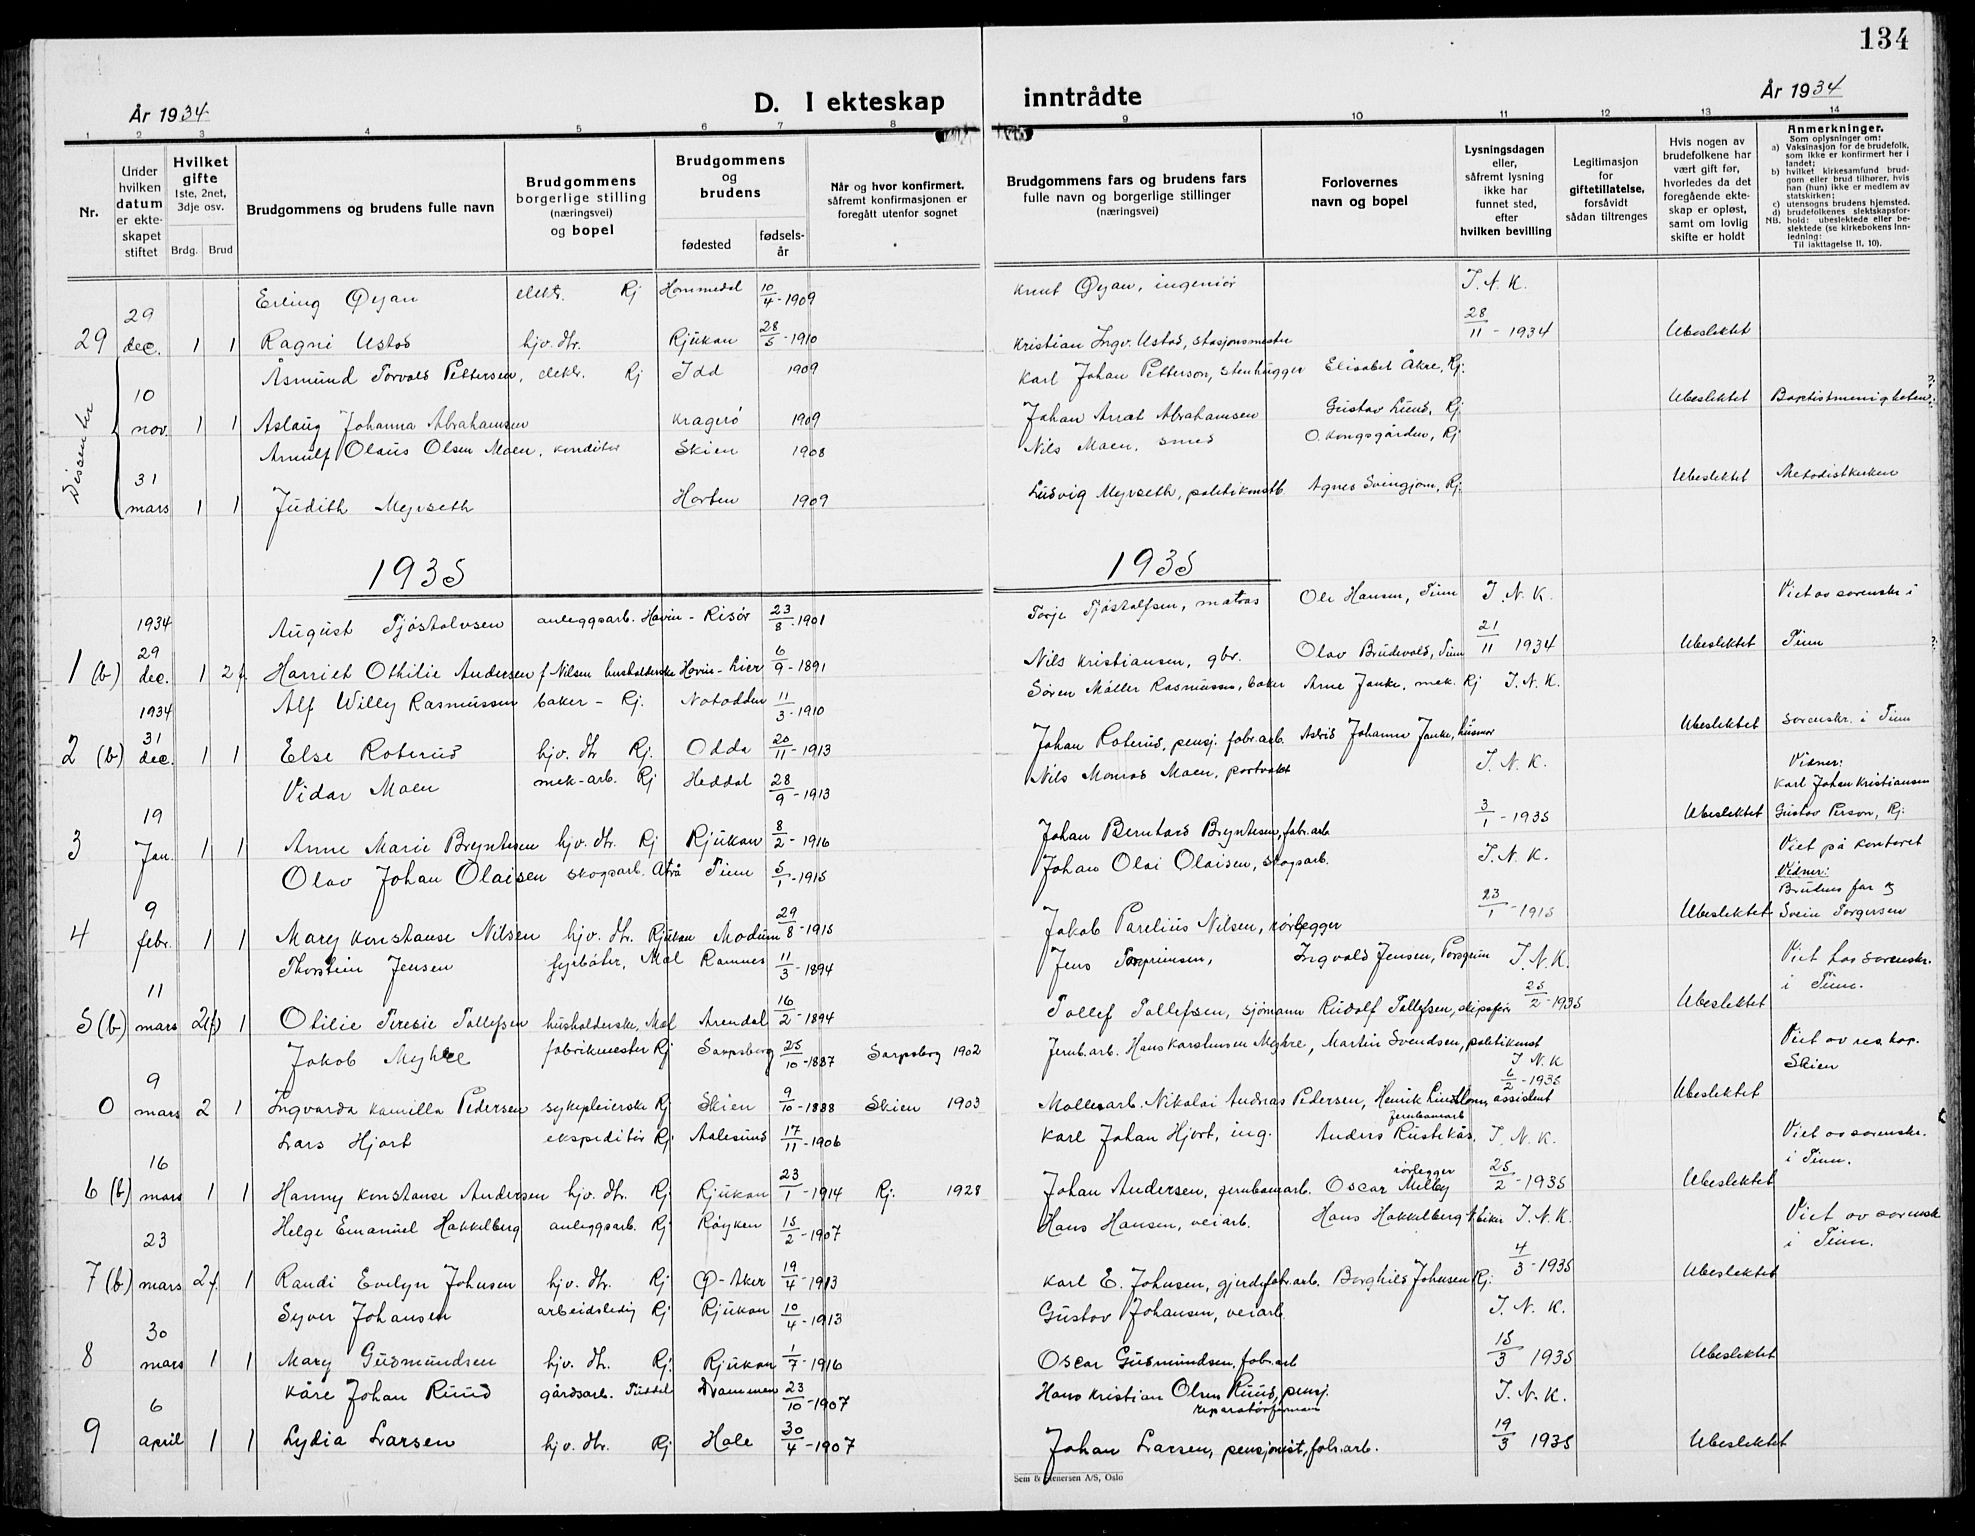 134
År 1934
D. I ekteskap inntrådte
År 1934
1 2 3 4 5 6 7 8 9 10 11 12 13 14
Nr.
Under hvilken datum er ekteskapet stiftet
Hvilket gifte
1ste, 2net, 3dje osv.
Brdg. Brud
Brudgommens og brudens fulle navn
Brudgommens borgerlige stilling (næringsvei) og bopel
Brudgommens og brudens
fødested
fødselsår
Når og hvor konfirmert, såfremt konfirmasjonen er foregått utenfor sognet
Brudgommens fars og brudens fars fulle navn og borgerlige stillinger (næringsvei)
Forlovernes navn og bopel
Lysningsdagen eller, såfremt lysning ikke har funnet sted, efter hvilken bevilling
Legitimasjon for giftetillatelse, forsåvidt sådan tiltrenges
Hvis nogen av brudefolkene har vært gift før, hvorledes da det foregående ekteskap er opløst, samt om lovlig skifte er holdt
Anmerkninger.
Som oplysninger om:
a) Vaksinasjon for de brudefolk, som ikke er konfirmert her i landet;
b) hvilket kirkesamfund brudgom eller brud tilhører, hvis han (hun) ikke er medlem av statskirken;
c) utensogns brudens hjemsted.
d) brudefolkenes slektskapsforhold: ubeslektede eller beslektede (se kirkebokens innledning:
NB. Til iakttagelse II, 10).
Erling Øyan elektr. Rj Hommedal 10/4-1909 Knut Øyan, ingeniør T. N. K.
29 29 dec. 1 1 Ragni Ustad hjv. dtr. Rjukan 28/5-1910 Kristian Ingv. Ustad, stasjonsmester 28/11-1934 Ubeslektet
Dissenter
Åsmund Torvald Pettersen, elektr. Rj Idd 1909 Karl Johan Petterson, stenhugger Elisabet Åkre, Rj.
10 nov. 1 1 Aslaug Johanna Abrahamsen Kragerø 1909 Johan Abrahamsen Gustav Lund, Rj Ubeslektet Baptistmenigheten
Arnulf Olaus Olsen Maen, konditor Skien 1908 Nils Maen, smed O. Kongsgården, Rj
31 mars 1 1 Judith Myrseth Horten 1909 Ludvig Myrseth, politikonstb. Agnes Svingjom, Rj. Ubeslektet Metodistkirken
1935 1935
1934 August Tjøstolvsen anleggsarb. Hovin - Risør 23/8-1901 Torje Tjøstolfsen, matros Ole Hansen, Tinn T. N. K. Viet av sorenskr. i
1 (b) 29 dec. 1 2 f. Harriet Othilie Andersen f. Nilsen husholderske Hovin - Lier 6/9-1891 Nils Kristiansen, gbr. Olav Brudevold, Tinn 21/11 1934 Ubeslektet Tinn
1934 Alf Willy Rasmussen baker - Rj. Notodden 11/3-1910 Søren Møller Rasmussen, baker Arne Janke, mek. Rj T. N. K.
2 (b) 31 dec. 1 1 Else Roterud hjv. dtr Rj. Odda 20/11-1913 Johan Roterud, pensj. fabr.arb. Astrid Johanna Janke, husmor Ubeslektet sorenskr. i Tinn
Vidar Maen mek-arb. Rj Heddal 28/9-1913 Nils Monrad Maen, portvakt T. N. K. Vidner: Karl Johan Kristiansen
3 19 Jan. 1 1 Anne Marie Bryntesen hjv. dtr. Rj Rjukan 8/2-1916 Johan Bernhard Bryntesen, fabr.arb 3/1-1935 Ubeslektet Gustav Person, Rj.
Olav Johan Olaisen skogsarb. Atrå Tinn 5/1-1915 Johan Olai Olaisen, skogsarb. T. N. K. Viet på kontoret Vidner:
4 9 febr. 1 1 Mary Konstanse Nilsen hjv. dtr. Rjukan Modum 29/8-1915 Jakob Parelius Nilsen, rørlegger 23/1-1915 Ubeslektet Brudens far og Svein Torgersen
Thorstein Jensen fyrbøter, Mæl Ramnes 11/3-1894 Jens Ingvald Jensen, Porsgrunn T. N. K. Viet hos sorenskr. i Tinn.
5 (b) 11 mars 2(f) 1 Otilie Teresie Tollefsen husholderske, Mæl Arendal 16/2-1894 Tollef Tollefsen, sjømann Rudolf Tollefsen, skipsfører 25/2-1935 Ubeslektet
Jakob Myhre fabrikmester Rj Sarpsborg 25/10-1887 Sarpsborg 1902 Jernb.arb. Hans Karstensen Myhre, Martin Svendsen, politikonst T. N. K Viet av res. kap. Skien
0 9 mars 2 1 Ingvarda Kamilla Pedersen sykepleierske Rj Skien 9/10-1888 Skien 1903 Møllearb. Nikolai Andreas Pedersen, Henrik assistent 6/2-1935 Ubeslektet
Lars Hjort ekspeditør Rj. Aalesund 17/11-1906 Karl Johan Hjort, ing. Anders Rustekås, jernbanearb T. N. K. Viet av sorenskr. i Tinn.
6 (b) 16 mars 1 1 Hanny Konstanse Andersen hjv. dtr. Rj Rjukan 23/1-1914 Rj. 1928 Johan Andersen, jernbanearb. Oscar Melby rørlegger 25/2-1935 Ubeslektet
Helge Emanuel Hakkelberg anleggsarb. Rj Røyken 15/2-1907 Hans Hansen, veiarb. Hans Hakkelberg T. N. K. Viet av sorensk i Tinn.
7 (b) 23 mars 2f. 1 Randi Evelyn Johnsen hjv. dtr. Rj Ø-Aker 19/4-1913 Karl E. Johnsen, gjerdefabr.arb. Borghild Johnsen Rj. 4/3-1935 Ubeslektet
Syver Johansen arbeidsledig Rj Rjukan 10/4-1913 Gustav Johansen, veiarb. T. N. K.
8 30 mars 1 1 Mary Gudmundsen hjv. dtr. Rj. Rjukan 1/7-1916 Oscar Gudmundsen, fabr.arb 15/3 1935 Ubeslektet
Kåre Johan Ruud gårdsarb. Tuddal Drammen 23/10-1907 Hans Kristian Olsen Ruud, pensj. reparatørformann T. N. K.
9 6 april 1 1 Lydia Larsen hjv. dtr. Rj Hole 30/4-1907 Johan Larsen, pensjonist, fabr.arb. 19/3 1935 Ubeslektet
Sem & Stenersen A/S, Oslo